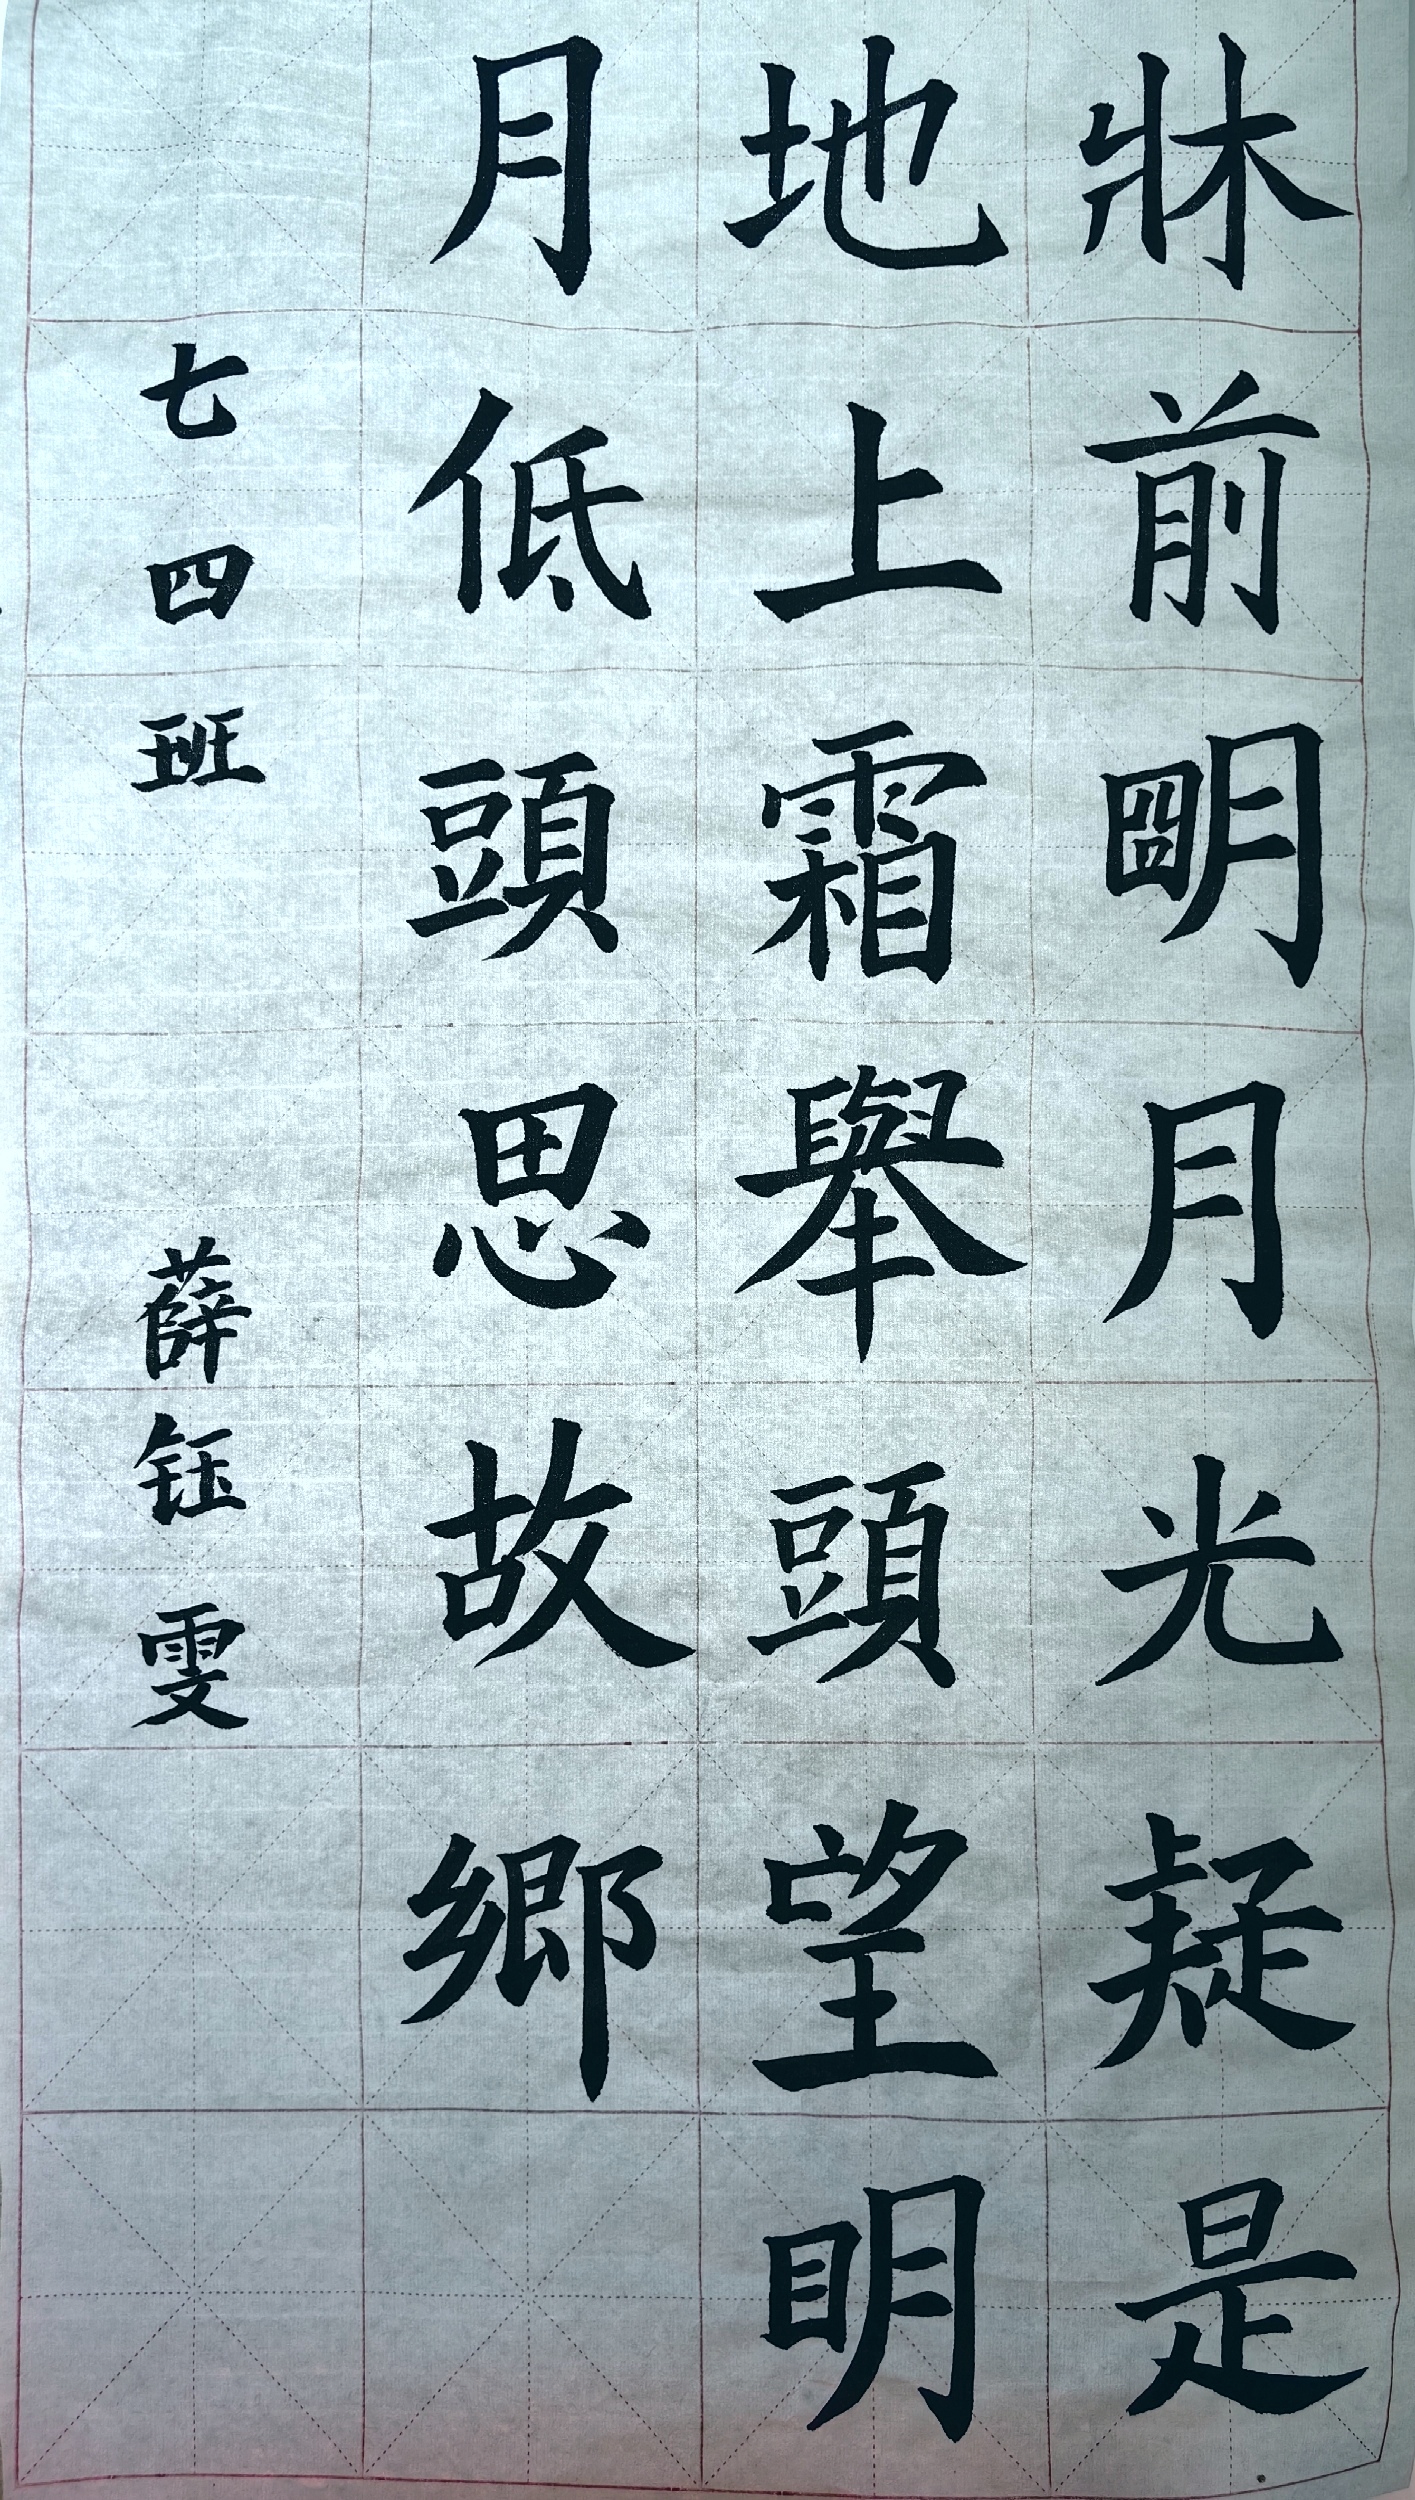 牀前朙月光疑是
地上霜舉頭望眀
月低頭思故鄉
七四班 薛钰雯